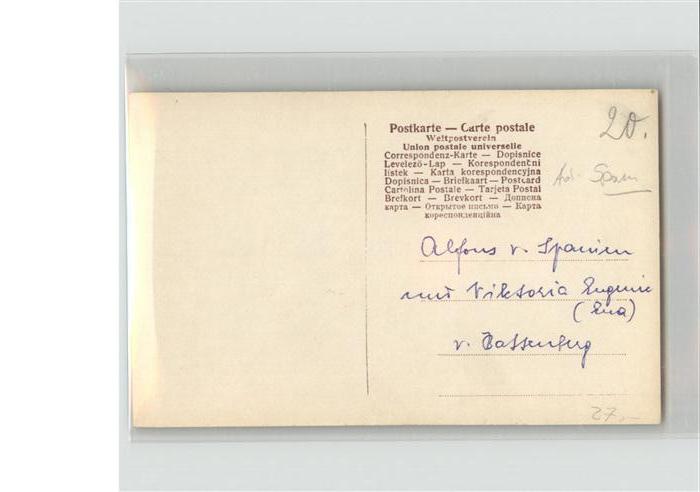 Postkarte — Carte postale
Weltpostverein
Union postale universelle
Correspondenz-Karte — Dopisnice
Levelező-Lap — Korespondentni
listek — Karta korespondencyjna
Dopisnica — Briefkaart — Postcard
Cartolina Postale — Tarjeta Postal
Brefkort — Brevkort — Дописна
карта — Открытое письмо — Карта
кореспонденційна
20.
Ad. Spani
Alfons v. Spanien
mit Viktoria Eugenie
(Ena)
v. Battenberg
27,–